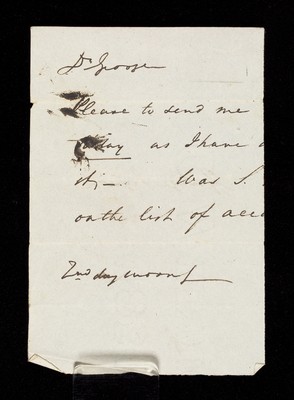 Dr George
Please to send me
today as I have a
Was S.
on the list of acco
2nd day